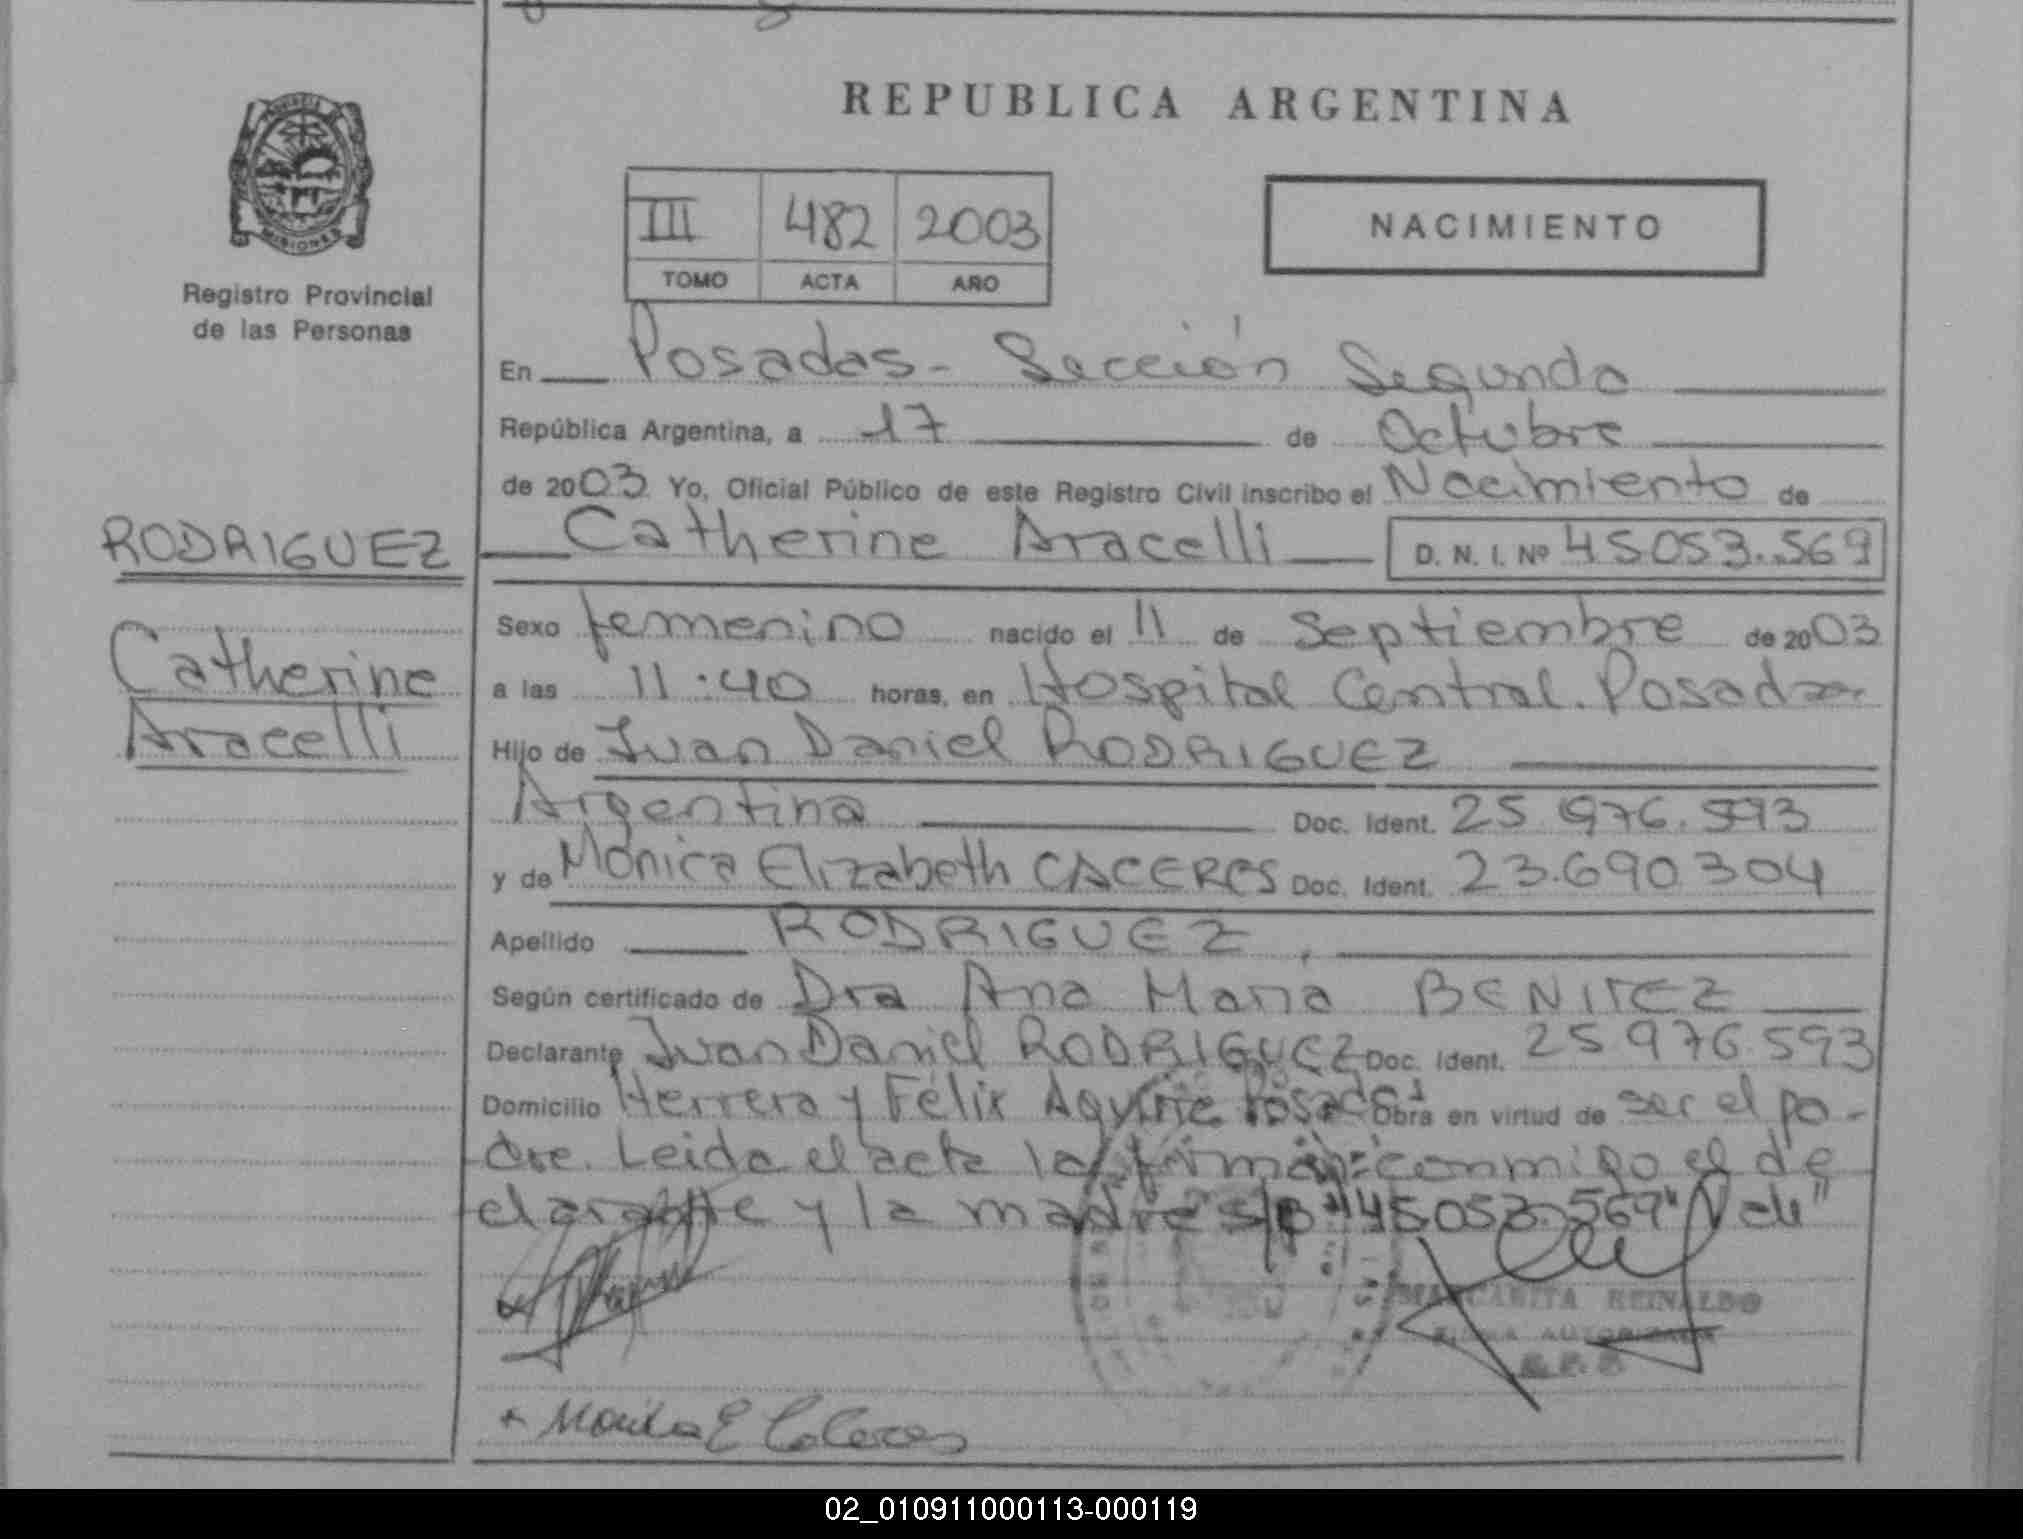 REPUBLICA ARGENTINA
PROVINCIA
MISIONES
Registro Provincial
de las Personas
III 482 2003
TOMO ACTA AÑO
NACIMIENTO
En Posadas - Sección Segunda
República Argentina, a 17 de Octubre
de 2003 Yo, Oficial Público de este Registro Civil inscribo el Nacimiento de
RODRIGUEZ
Catherine Aracelli D. N. I. Nº 45053.569
Catherine
Aracelli
Sexo femenino nacido el 11 de Septiembre de 2003
a las 11:40 horas, en Hospital Central. Posadas
Hijo de Juan Daniel RODRIGUEZ
Argentina Doc. Ident. 25 976.593
y de Mónica Elizabeth CACERES Doc. Ident. 23.690 304
Apellido RODRIGUEZ
Según certificado de Dra Ana Maria BENITEZ
Declarante Juan Daniel RODRIGUEZ Doc. Ident. 25 976.593
Domicilio Herrera y Félix Aguirre Posadas Obra en virtud de ser el pa-
dre. Leida el acta la firman conmigo el de
clarante y la madre s/p "45.053.569" Vale"
MARGARITA REINALDO
FIRMA AUTORIZADA
R. P. P.
Monica E Caceres
02_010911000113-000119